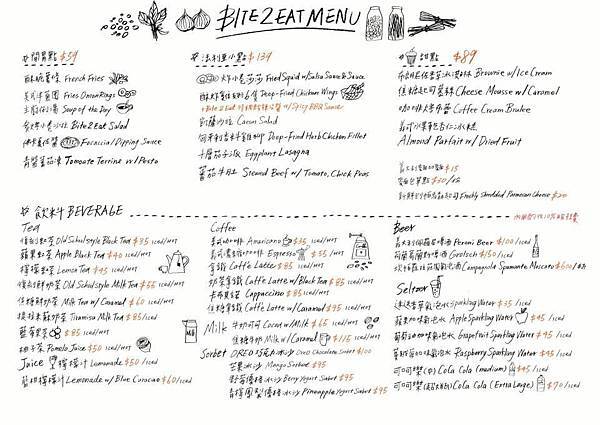 BITE2EAT MENU
開胃點 $59
酥脆薯條 French Fries
美式洋蔥圈 Fries Onion Rings
主廚例湯 Soup of the Day
Bite2Eat Salad
Focaccia / Dipping Sauce
青醬蕃茄凍 Tomato Terrine w/ Pesto
小點 $139
Fried Squid w/ Salsa Sauce
Deep-Fried Chicken Wings
w/ Spicy BBQ Sauce
凱薩沙拉 Caesar Salad
Deep-Fried Chicken Fillet
Eggplant Lasagna
蕃茄牛肚 Stewed Beef w/ Tomato, Chick Peas
甜點 $89
Brownie w/ Ice Cream
Cheese Mousse w/ Caramel
咖啡烤布蕾 Coffee Cream Brulee
Almond Parfait w/ Dried Fruit
$15
$30
Freshly Shredded Parmesan Cheese $20
飲料 BEVERAGE
Tea
Old School style Black Tea $35 iced/HOT
蘋果紅茶 Apple Black Tea $40 iced/HOT
檸檬紅茶 Lemon Tea $45 iced/HOT
Old School style Milk Tea $55 iced/HOT
焦糖鮮奶茶 Milk Tea w/ Caramel $60 iced/HOT
提拉米蘇鮮奶茶 Tiramisu Milk Tea $85 iced/HOT
$85
柚子茶 Pomelo Juice $50 iced/HOT
Juice 檸檬汁 Lemonade $50 /iced
藍柑檸檬汁 Lemonade w/ Blue Curacao $60 /iced
Coffee
美式咖啡 Americano $35 iced/HOT
美式濃縮咖啡 Espresso $55
拿鐵 Caffè Latte $85 iced/HOT
奶茶拿鐵 Caffè Latte w/ Black Tea $85 iced/HOT
卡布其諾 Cappuccino $85 iced/HOT
焦糖拿鐵 Caffè Latte w/ Caramel $95 iced/HOT
Milk 牛奶可可 Cocoa w/ Milk $65 iced/HOT
焦糖牛奶 Milk w/ Caramel $115 iced/HOT
Sorbet OREO 巧克力冰沙 Oreo Chocolate Sorbet $100
芒果冰沙 Mango Sorbet $95
野莓優格冰沙 Berry Yogurt Sorbet $95
青檸鳳梨優格冰沙 Pineapple Yogurt Sorbet $95
Beer
Peroni Beer $100 /iced
Grolsch $150 /iced
Campagnola Spumante Moscato $600
Seltzer
Sparkling Water $35 /iced
蘋果加味氣泡水 Apple Sparkling Water $45 /iced
葡萄柚加味氣泡水 Grapefruit Sparkling Water $45 /iced
覆盆莓加味氣泡水 Raspberry Sparkling Water $45 /iced
可口可樂(中) Coca Cola (medium) $45 /iced
可口可樂(超大瓶) Coca Cola (Extra Large) $70 /iced